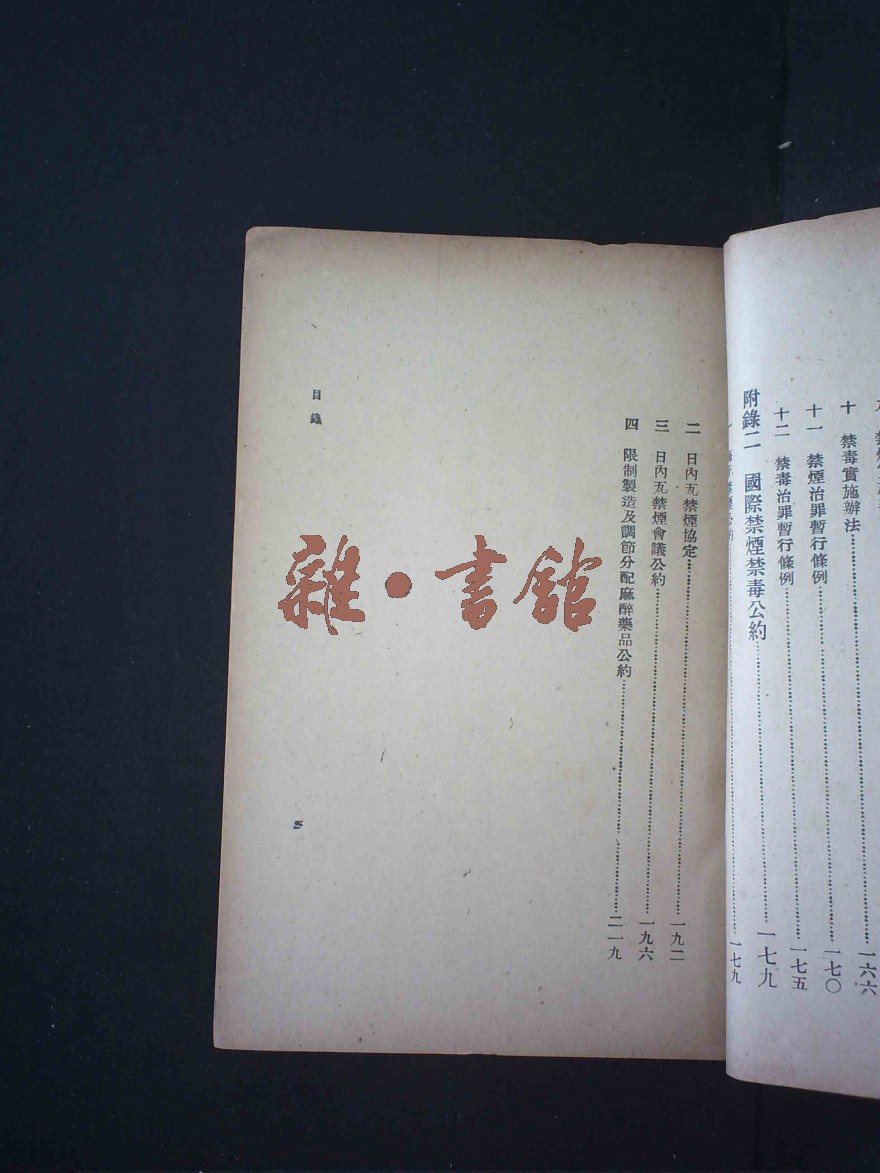 十 禁毒實施辦法……一六六
十一 禁煙治罪暫行條例……一七〇
十二 禁毒治罪暫行條例……一七五
附錄二 國際禁煙禁毒公約……一七九
一七九
二 日內瓦禁煙協定……一九二
三 日內瓦禁煙會議公約……一九六
四 限制製造及調節分配麻醉藥品公約……二一九
目錄
雜·書館